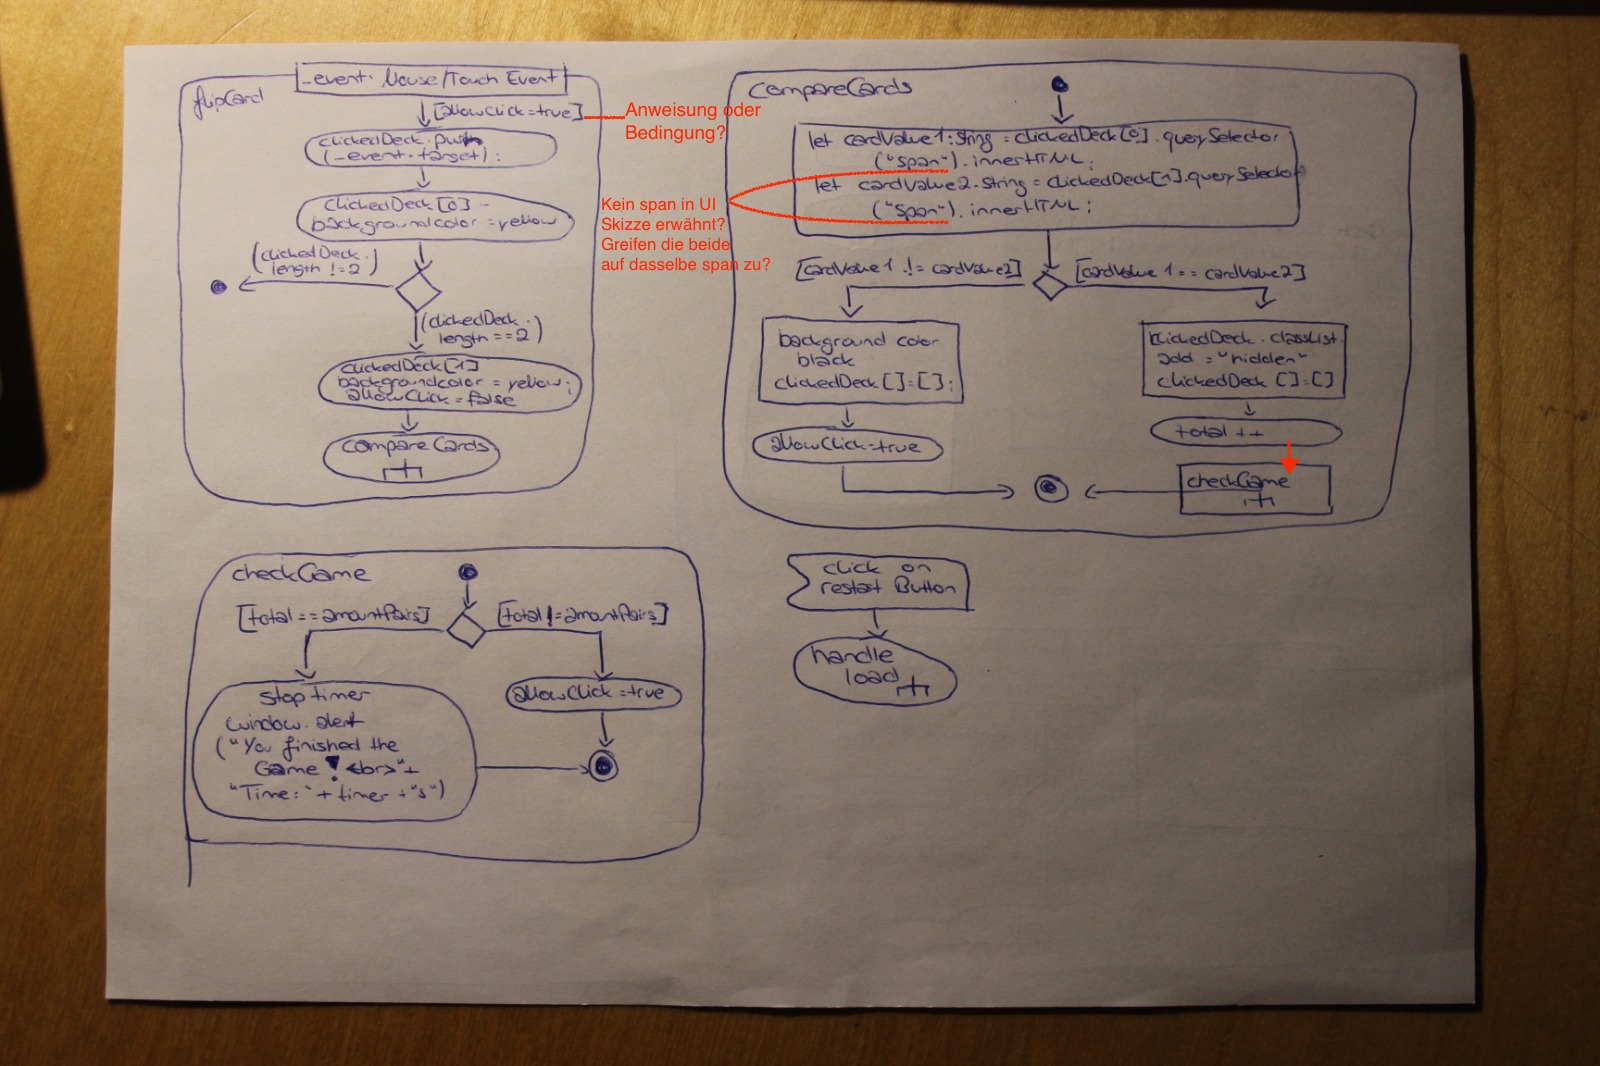 flipCard
_event: Mouse/Touch Event
[allowClick=true]
Anweisung oder
Bedingung?
clickedDeck.push
(_event.target);
clickedDeck[0].
backgroundcolor=yellow
(clickedDeck.
length !=2)
(clickedDeck.
length ==2)
clickedDeck[1]
backgroundcolor = yellow;
allowClick = false
compareCards
compareCards
let cardValue1:String = clickedDeck[0].querySelector
("span").innerHTML;
let cardValue2:String = clickedDeck[1].querySelector
("span").innerHTML;
Kein span in UI
Skizze erwähnt?
Greifen die beide
auf dasselbe span zu?
[cardValue1 != cardValue2]
[cardValue1 == cardValue2]
background color
black
clickedDeck[]=[];
allowClick=true
clickedDeck.classList.
add = "hidden"
clickedDeck []=[]
total ++
checkGame
checkGame
[total == amountPairs]
[total != amountPairs]
stop timer
window.alert
("You finished the
Game! <br>"+
"Time:" + timer +"s")
allowClick=true
click on
restart Button
handle
load